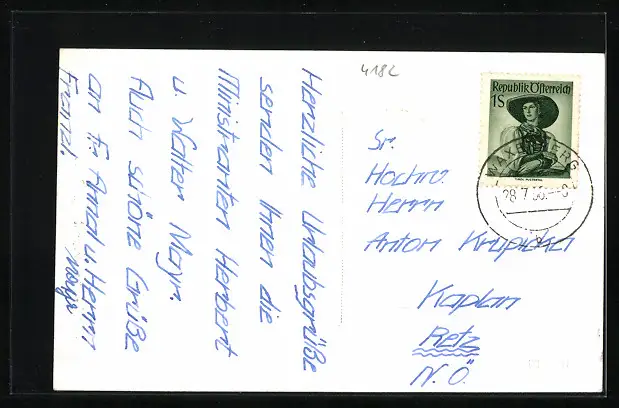 4182
Republik Österreich
1S
WAXENBERG
28.7.
Herzliche Urlaubsgrüße
senden Ihnen die
Ministranten Herbert
u. Walter Mayr.
Auch schöne Grüße
an Fr. Amal u. Herrn
Franzl.
Mayr
Sr.
Hochw.
Herrn
Anton Krupicka
Kaplan
Retz
N.Ö.